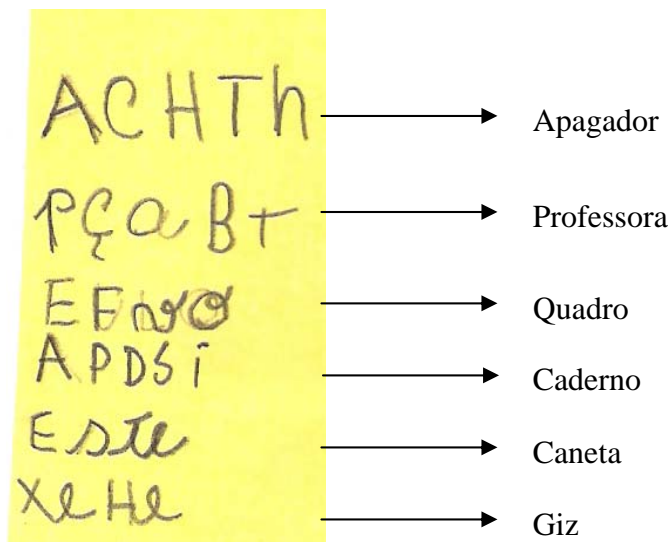 ACHTh Apagador
PÇaBt Professora
EEnvo Quadro
APDSi Caderno
Este Caneta
XeHe Giz